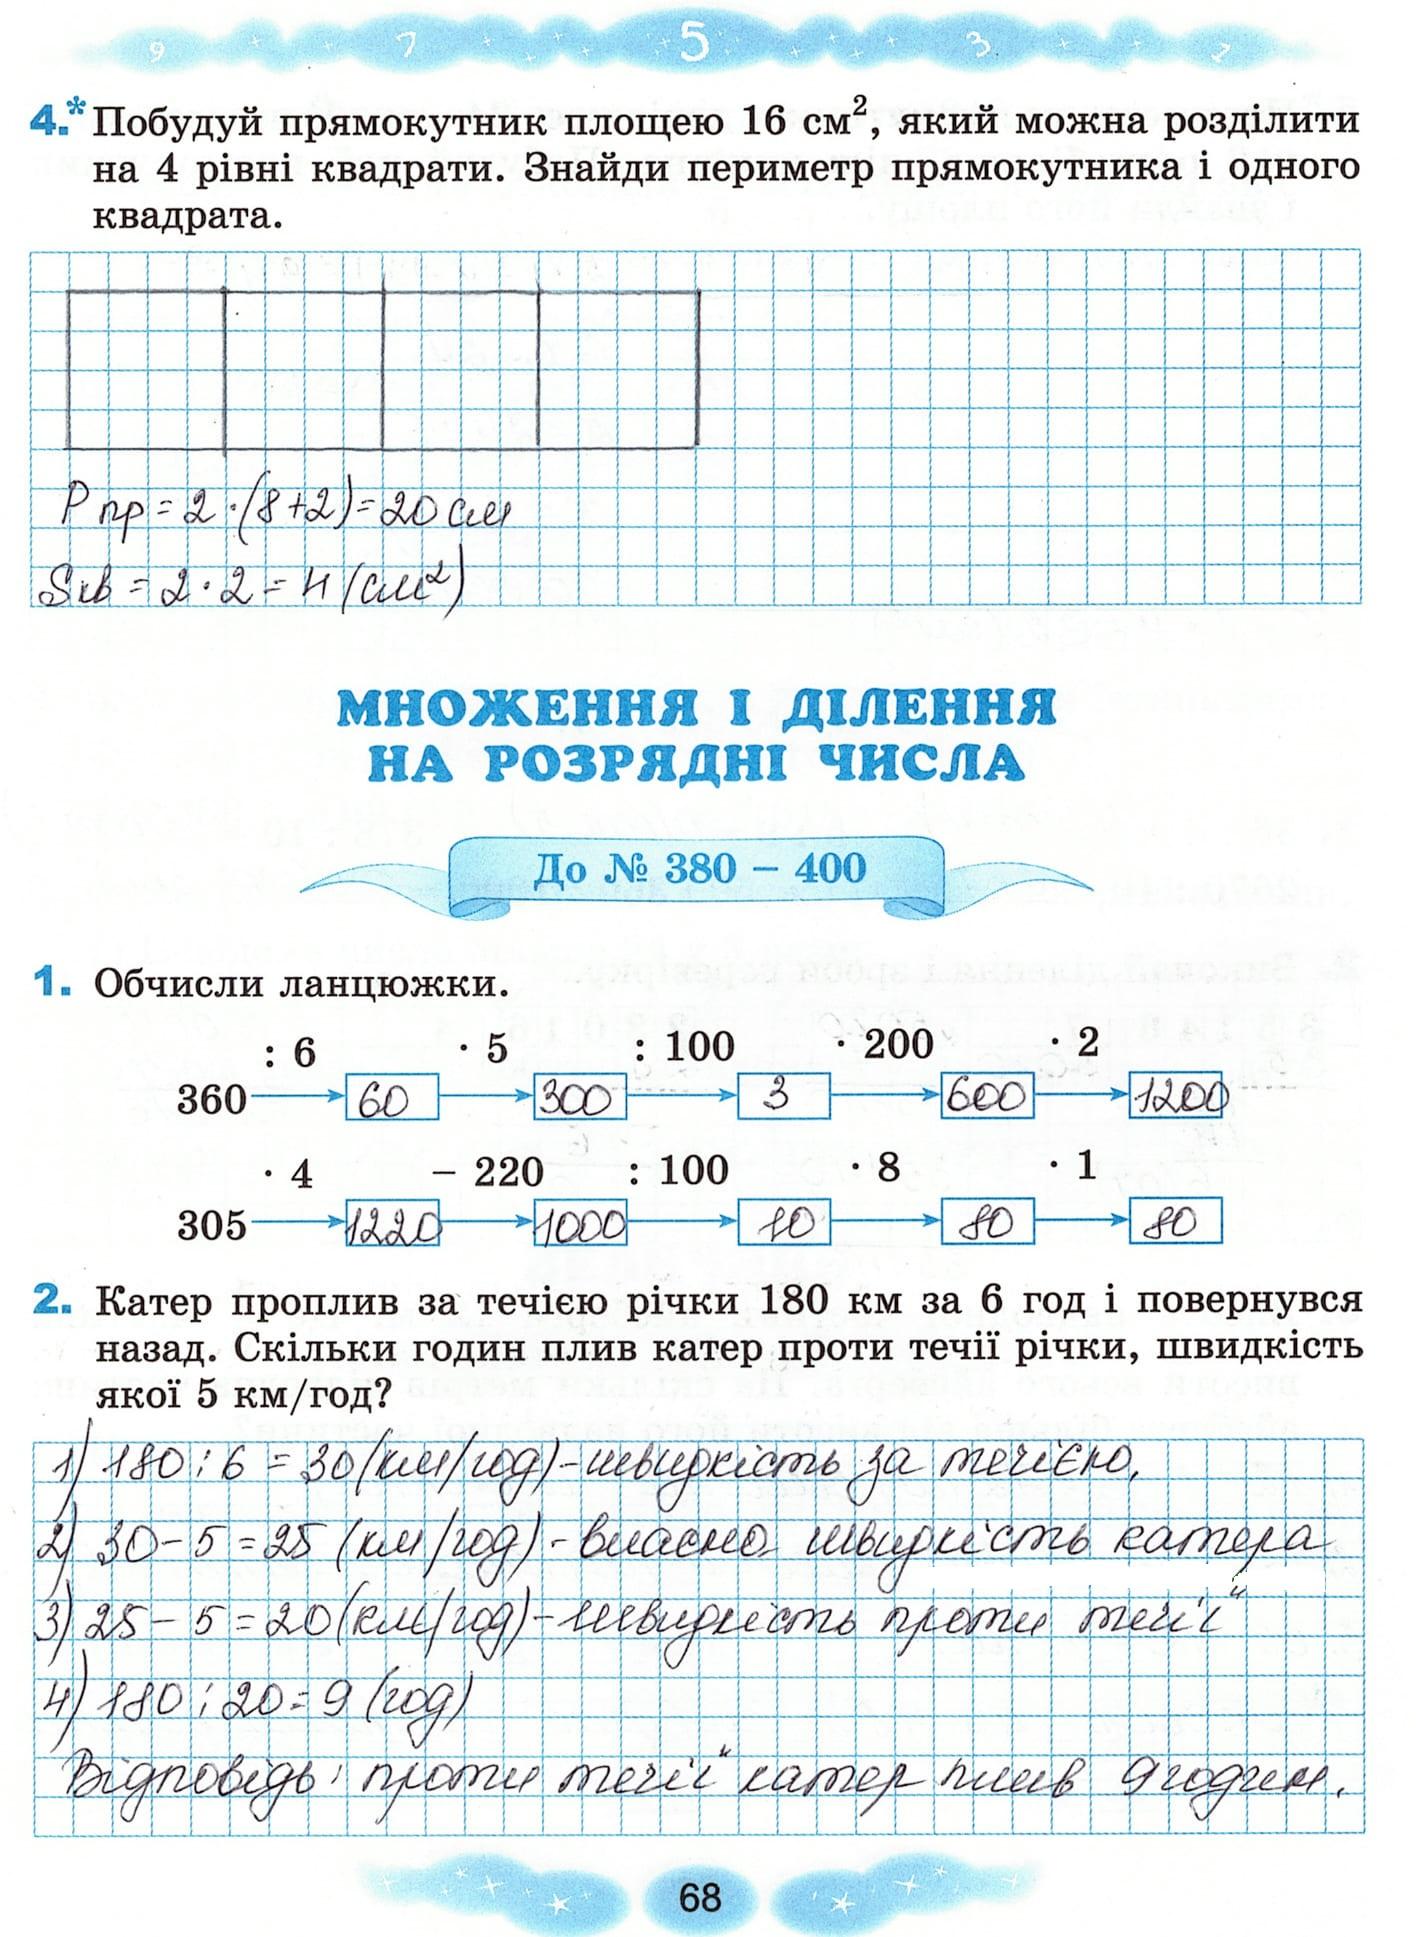 9 7 5 3 1
4.* Побудуй прямокутник площею 16 см², який можна розділити
на 4 рівні квадрати. Знайди периметр прямокутника і одного
квадрата.
P пр = 2 · (8+2) = 20 см
Sкв = 2 · 2 = 4 (см²)
МНОЖЕННЯ І ДІЛЕННЯ
НА РОЗРЯДНІ ЧИСЛА
До № 380 – 400
1. Обчисли ланцюжки.
: 6 · 5 : 100 · 200 · 2
360 60 300 3 600 1200
· 4 – 220 : 100 · 8 · 1
305 1220 1000 10 80 80
2. Катер проплив за течією річки 180 км за 6 год і повернувся
назад. Скільки годин плив катер проти течії річки, швидкість
якої 5 км/год?
1) 180 : 6 = 30 (км/год) – швидкість за течією.
2) 30 – 5 = 25 (км/год) - власна швидкість катера
3) 25 – 5 = 20 (км/год) – швидкість проти течії
4) 180 : 20 = 9 (год)
Відповідь: проти течії катер плив 9 годин.
68